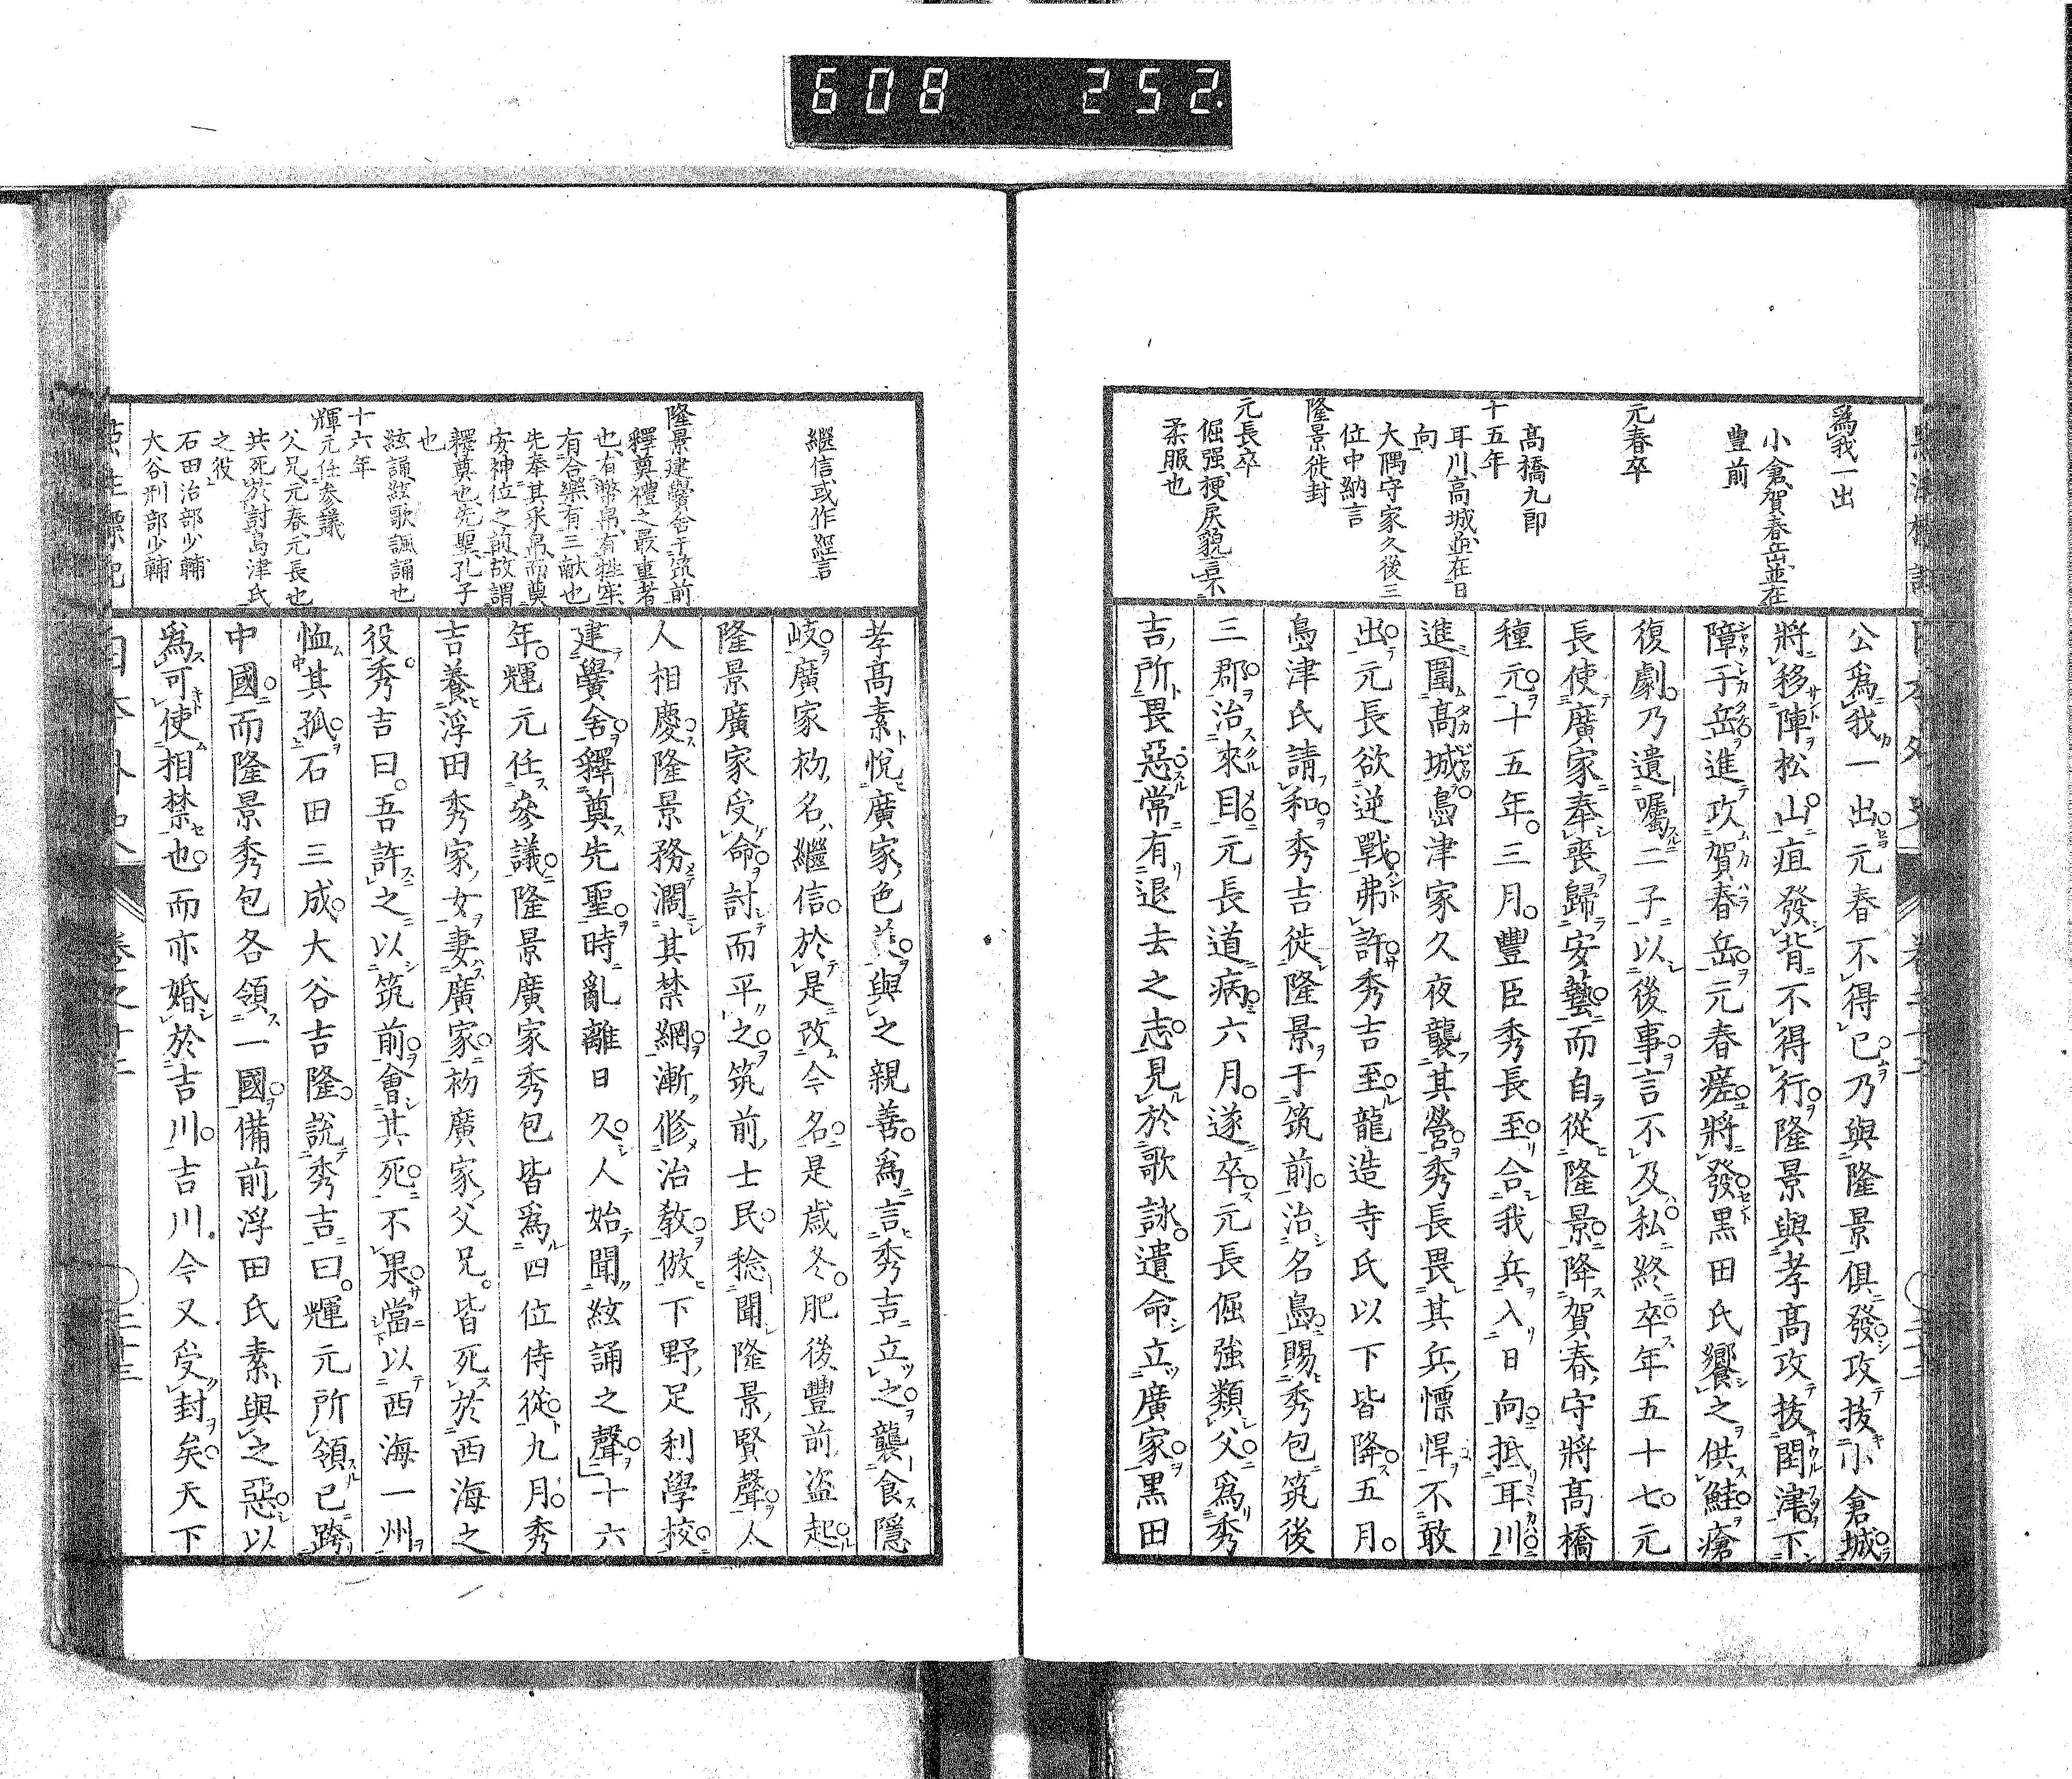 608 252
爲我一出
小倉、賀春岳、並在
豊前
元春卒
高橋九郎
十五年
耳川、高城、並在日
向
大隅守家久後三
位中納言
隆景徙封
元長卒
倔强、梗戾貌、言不
柔服也
公爲我一出元春不得已乃與隆景俱發攻抜小倉城
將移陣松山疽發背不得行隆景與孝高攻抜閏津下
障子岳進攻賀春岳元春瘥將發黒田氏饗之供鮭瘡
復劇乃遺囑二子以後事言不及私終卒年五十七元
長使廣家奉喪歸安藝而自從隆景降賀春守將高橋
種元十五年三月豐臣秀長至合我兵入日向抵耳川
進圍高城島津家久夜襲其營秀長畏其兵慓悍不敢
出元長欲逆戰弗許秀吉至龍造寺氏以下皆降五月
島津氏請和秀吉徙隆景于筑前治名島賜秀包筑後
三郡治來目元長道病六月遂卒元長倔強類父爲秀
吉所畏惡常有退去之志見於歌詠遺命立廣家黒田
繼信、或作經言
隆景建黌舍于筑前
釋奠禮之最重者
也、有幣帛、有牲牢、
有合樂、有三獻也
先奉其釆帛、而奠
安神位之前故謂
釋奠也、先聖、孔子
也
絃誦絃歌諷誦也
十六年
輝元任參議
父兄、元春、元長也
共死於討島津氏
之役
石田治部少輔
大谷刑部少輔
孝高素悅廣家色與之親善爲言秀吉立之襲食隱
岐廣家初名繼信於是改今名是歳冬肥後豐前盜起
隆景廣家受命討而平之筑前士民稔聞隆景賢聲人
人相慶隆景務濶其禁網漸修治敎倣下野足利學校
建黌舍釋奠先聖時亂離日久人始聞絃誦之聲十六
年輝元任參議隆景廣家秀包皆爲四位侍從九月秀
吉養浮田秀家女妻廣家初廣家父兄皆死於西海之
役秀吉曰吾許之以筑前會其死不果當以西海一州
恤其孤石田三成大谷吉隆說秀吉曰輝元所領已跨
中國而隆景秀包各領一國備前浮田氏素與之惡以
爲可使相禁也而亦婚於吉川吉川今又受封矣天下